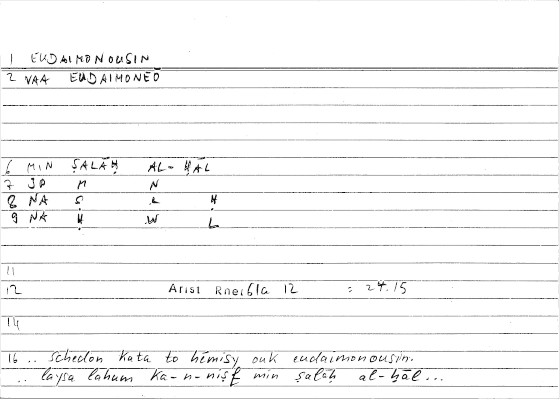 1 EUDAIMONOUSIN
2 VAA EUDAIMONEŌ
6 MIN ṢALĀḤ AL-ḤĀL
7 JP M N
8 NA Ṣ L Ḥ
9 NA Ḥ W L
11
12 Arist Rhet 61a 12 : 24.15
14
16 .. schedon kata to hēmisy ouk eudaimonousin.
.. laysa lahum ka-n-niṣf min ṣalāḥ al-ḥāl...